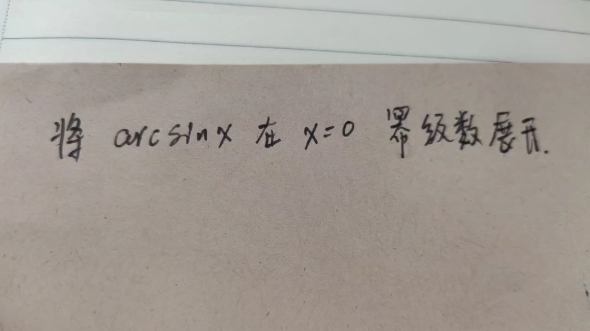 将 arcsinx 在 x=0 幂级数展开.